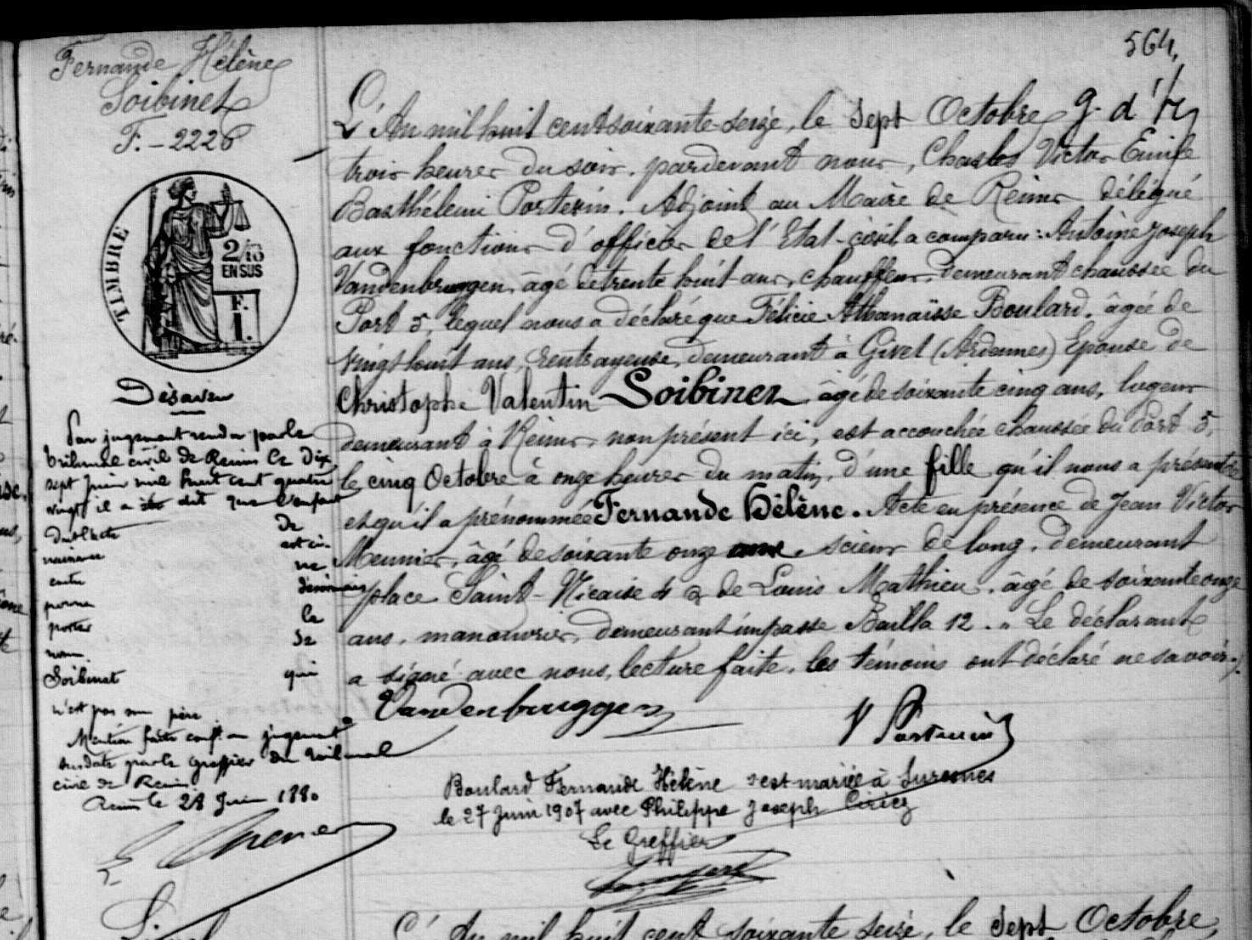 564.
Fernande Hélène
Soibinet
F. - 2226
TIMBRE
2/10
EN SUS
F.
1.
Désaveu
Par jugement rendu par le
tribunal civil de Reims le dix
sept Juin mil huit cent quatre
vingt il a été dit que l'enfant
dont acte de
naissance est ci-
contre ne
pourra désormais
porter le
nom de
Soibinet qui
n'est pas son père
Mention faite conf. au jugement
susdaté par le greffier du tribunal
civil de Reims
Reims le 28 Juin 1880
L'An mil huit cent soixante-seize, le sept Octobre
trois heures du soir, pardevant nous, Charles Victor Emile
Barthélemi Portevin, Adjoint au Maire de Reims délégué
aux fonctions d'officier de l'Etat-civil a comparu: Antoine Joseph
Vandenbruggen, âgé de trente huit ans, chauffeur, demeurant chaussée du
Port 5, lequel nous a déclaré que Félicie Albanaïsse Boulard, âgée de
vingt huit ans, rentrayeuse, demeurant à Givet (Ardennes) Epouse de
Christophe Valentin Soibinet, âgé de soixante cinq ans, logeur
demeurant à Reims, non présent ici, est accouchée chaussée du Port 5,
le cinq Octobre à onze heures du matin, d'une fille qu'il nous a présentée
et qu'il a prénommée Fernande Hélène. Acte en présence de Jean Victor
Meunier, âgé de soixante onze ans, scieur de long, demeurant
place Saint-Nicaise 4 & de Louis Mathieu, âgé de soixante onze
ans, manouvrier, demeurant impasse Bailla 12. Le déclarant
a signé avec nous, lecture faite, les témoins ont déclaré ne savoir.
Vandenbruggen
V Portevin
Boulard Fernande Hélène s'est mariée à Suresnes
le 27 Juin 1907 avec Philippe Joseph
Le Greffier
L'An mil huit cent soixante seize, le sept Octobre,